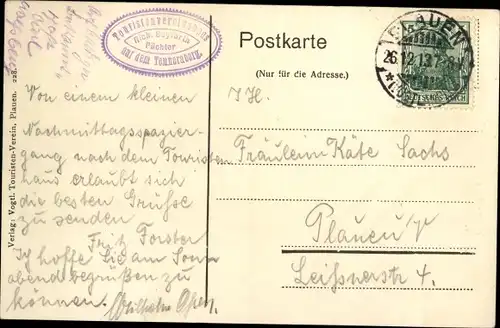 Touristenvereinshaus
Rich. Seyfarth
Pächter
auf dem Kemmlerberg.
Postkarte
(Nur für die Adresse.)
PLAUEN
26.12.13.7-8
DEUTSCHES REICH
Von einem kleinen
Nachmittagsspazier-
gang nach dem Touristen
haus erlaubt sich
die besten Grüsse
zu senden
Fritz Forster
Ich hoffe Sie am Sonn
abend begrüßen zu
können. Wilhelm
I H.
Fräulein Käte Sachs
Plauen i/V
Leißnerstr 4.
Verlag: Vogtl. Touristen-Verein, Plauen. 228.